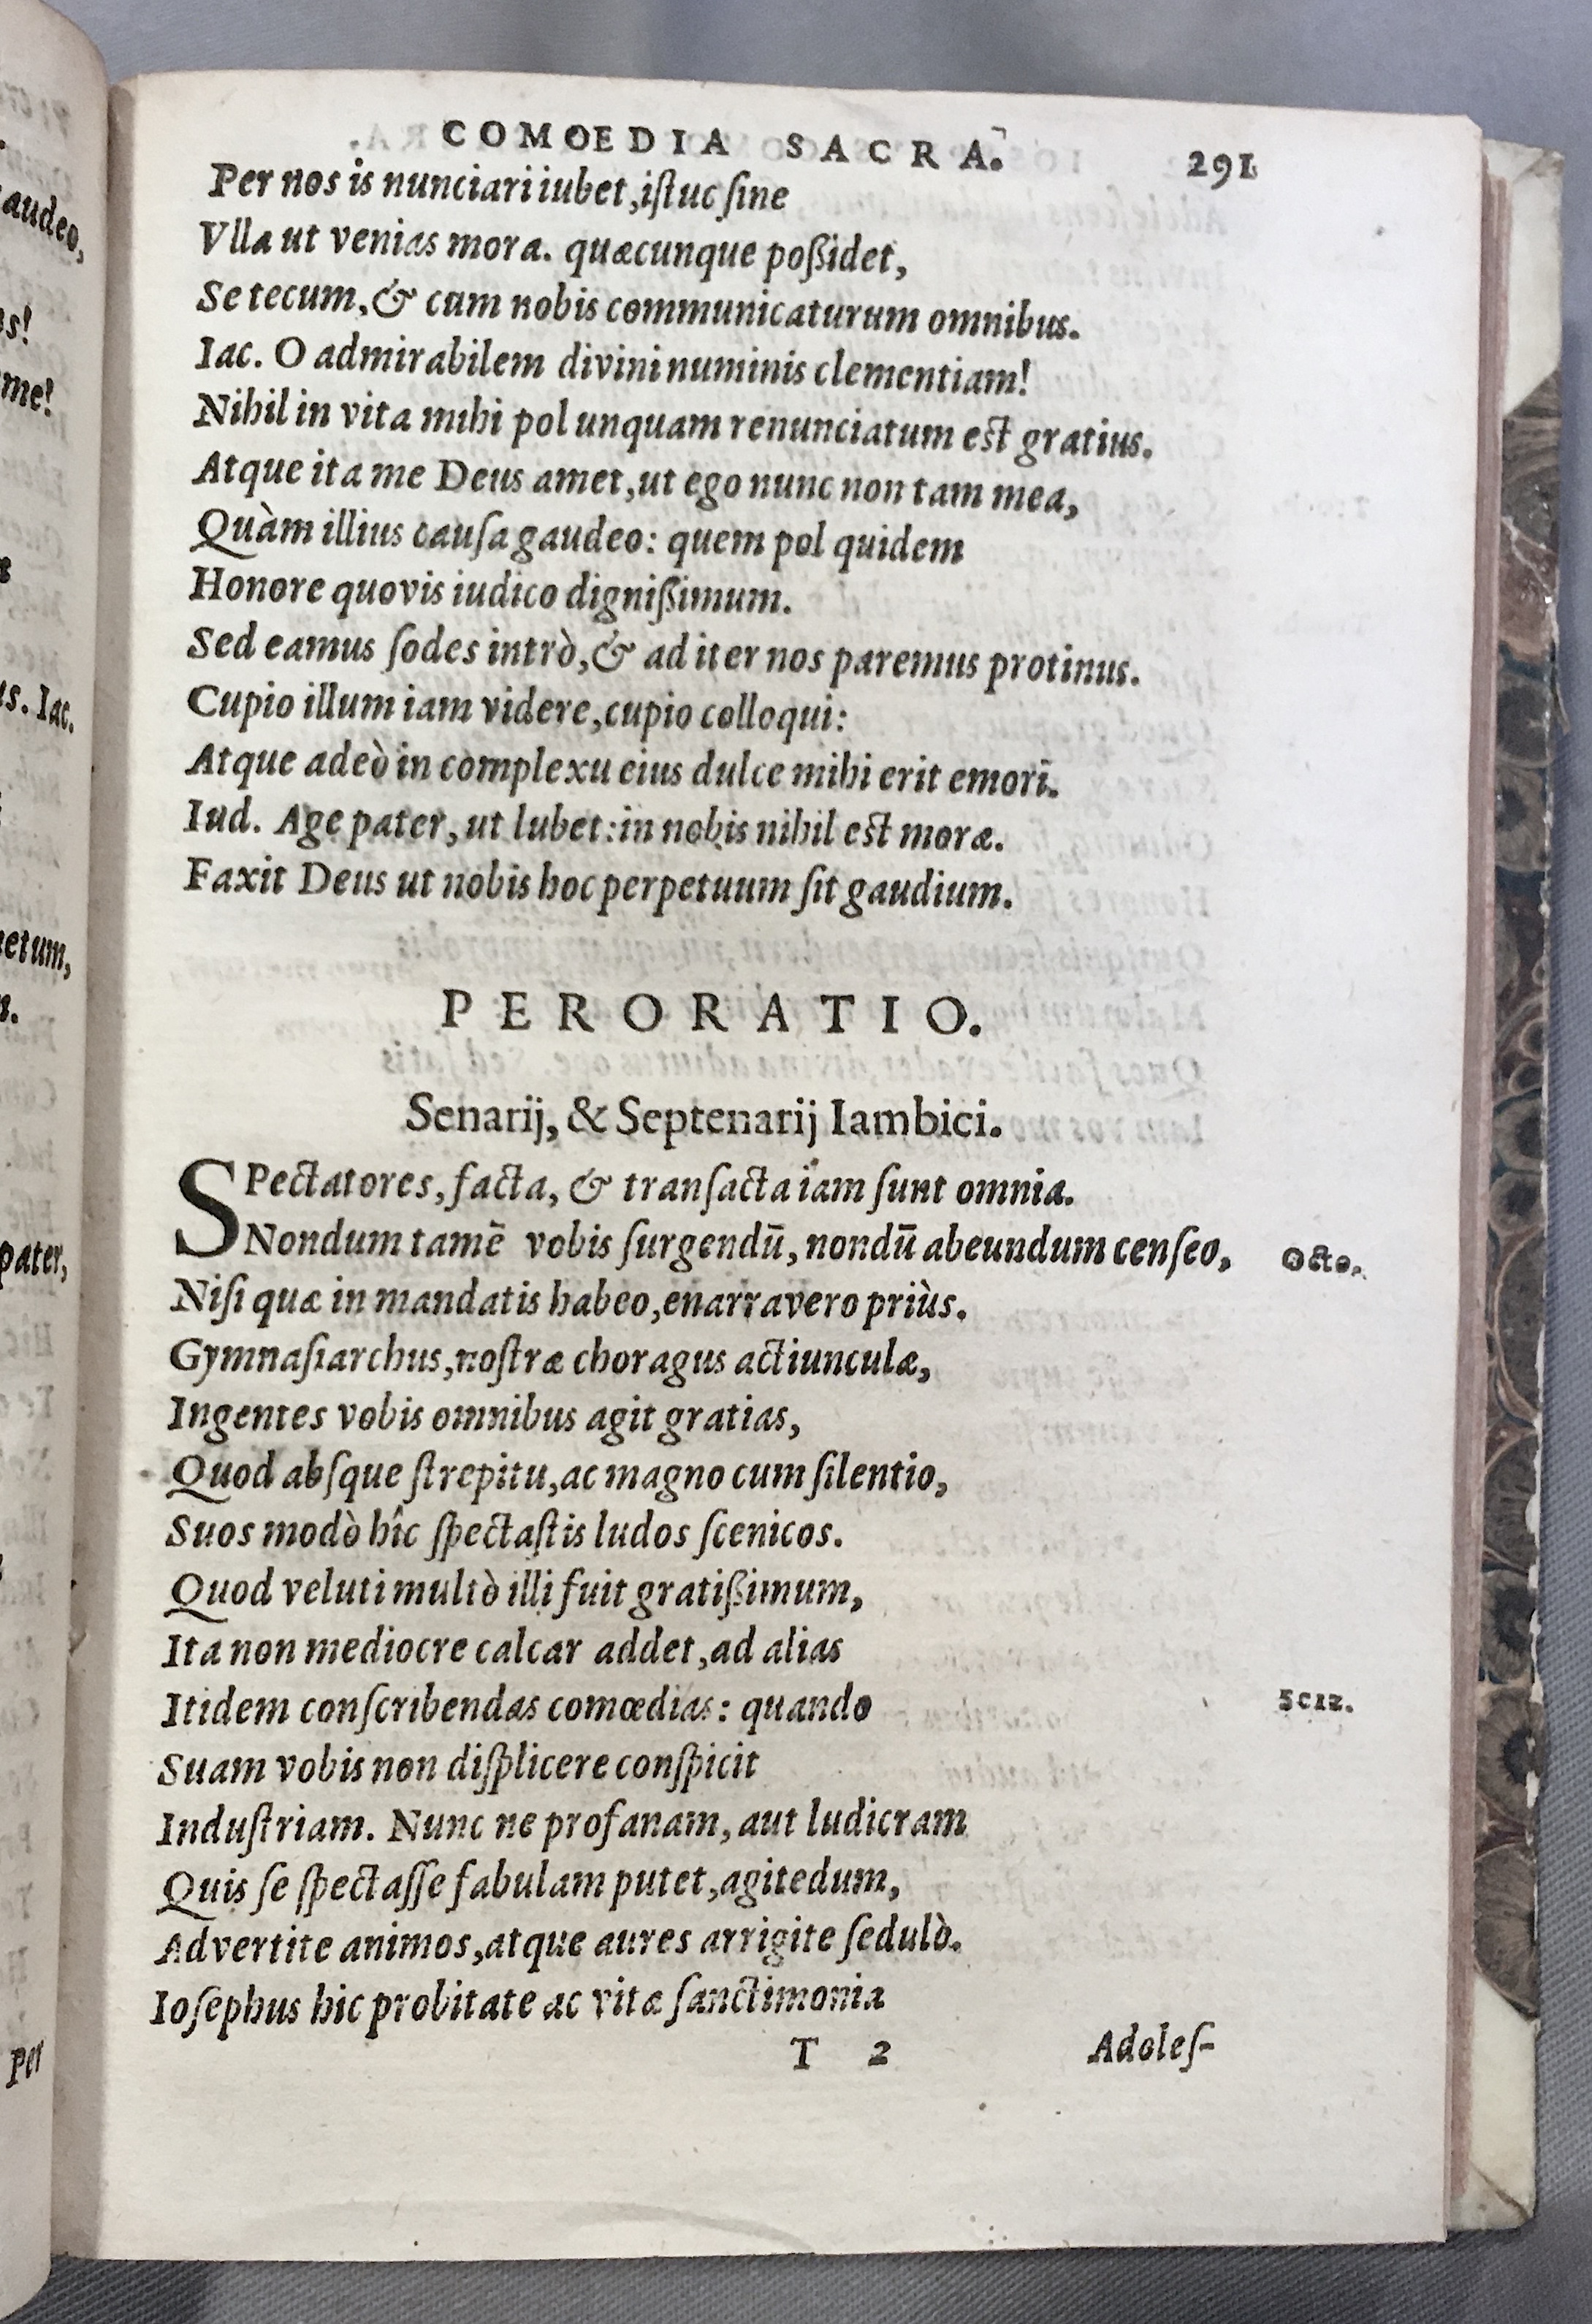 COMOEDIA SACRA. 291
Per nos is nunciari iubet, iſtuc ſine
Vlla ut venias mora. quæcunque poßidet,
Se tecum, & cum nobis communicaturum omnibus.
Iac. O admirabilem divini numinis clementiam!
Nihil in vita mihi pol unquam renunciatum est gratius.
Atque ita me Deus amet, ut ego nunc non tam mea,
Quàm illius cauſa gaudeo: quem pol quidem
Honore quovis iudico dignißimum.
Sed eamus ſodes intrò, & ad iter nos paremus protinus.
Cupio illum iam videre, cupio colloqui:
Atque adeò in complexu eius dulce mihi erit emori.
Iud. Age pater, ut lubet: in nobis nihil est moræ.
Faxit Deus ut nobis hoc perpetuum ſit gaudium.
PERORATIO.
Senarij, & Septenarij Iambici.
SPectatores, facta, & tranſacta iam ſunt omnia.
Nondum tamē vobis ſurgendū, nondū abeundum cenſeo, Octo.
Niſi quæ in mandatis habeo, enarravero priùs.
Gymnaſiarchus, noſtræ choragus actiunculæ,
Ingentes vobis omnibus agit gratias,
Quod abſque ſtrepitu, ac magno cum ſilentio,
Suos modò hîc ſpectaſtis ludos ſcenicos.
Quod veluti multò illi fuit gratißimum,
Ita non mediocre calcar addet, ad alias
Itidem conſcribendas comœdias: quando
Suam vobis non diſplicere conſpicit
Induſtriam. Nunc ne profanam, aut ludicram
Quis ſe ſpectaſſe fabulam putet, agitedum,
Advertite animos, atque aures arrigite ſedulò.
Ioſephus hic probitate ac vitæ ſanctimonia
T 2 Adoleſ-
audeo,
me!
Iac.
pater,
Per